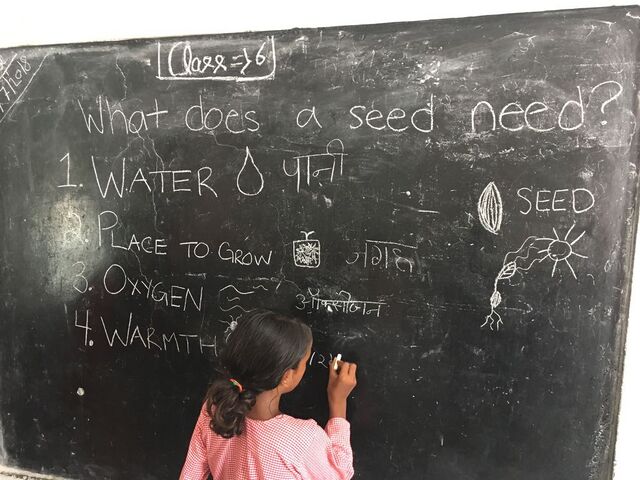 Class => 6
What does a seed need?
1. WATER पानी
2. PLACE TO GROW जगह
3. OXYGEN ऑक्सीजन
4. WARMTH
SEED